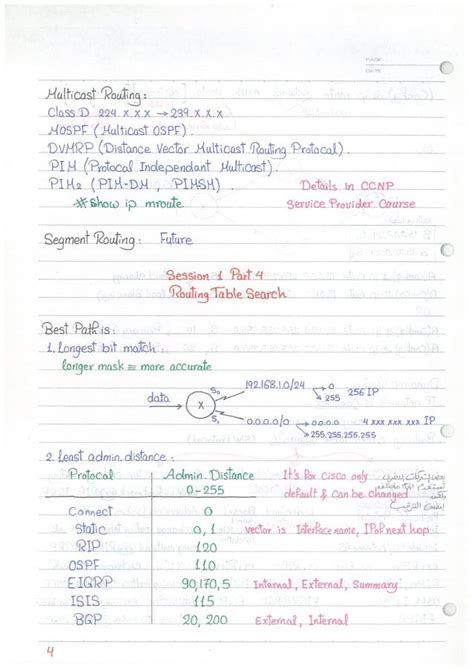 PAGE
DATE
Multicast Routing:
Class D 224.x.x.x → 239.x.x.x
MOSPF (Multicast OSPF).
DVMRP (Distance Vector Multicast Routing Protocal).
PIM (Protocal Independant Multicast).
PIM2 (PIM-DM, PIMSM). Details in CCNP
#Show ip mroute Service Provider Course
Segment Routing: Future
Session 1 Part 4
Routing Table Search
Best Path is:
1. Longest bit match:
longer mask ≡ more accurate
192.168.1.0/24 → 0 256 IP
→ 255
data → X S0
S1
0.0.0.0/0 → 0.0.0.0 4 xxx xxx xxx IP
→ 255.255.255.255
2. Least admin. distance:
Protocal Admin. Distance It's for cisco only
0-255 default & can be changed
Connect 0
Static 0, 1 vector is Interface name, IP of next hop
RIP 120
OSPF 110
EIGRP 90,170,5 Internal, External, Summary
ISIS 115
BGP 20, 200 External, Internal
4